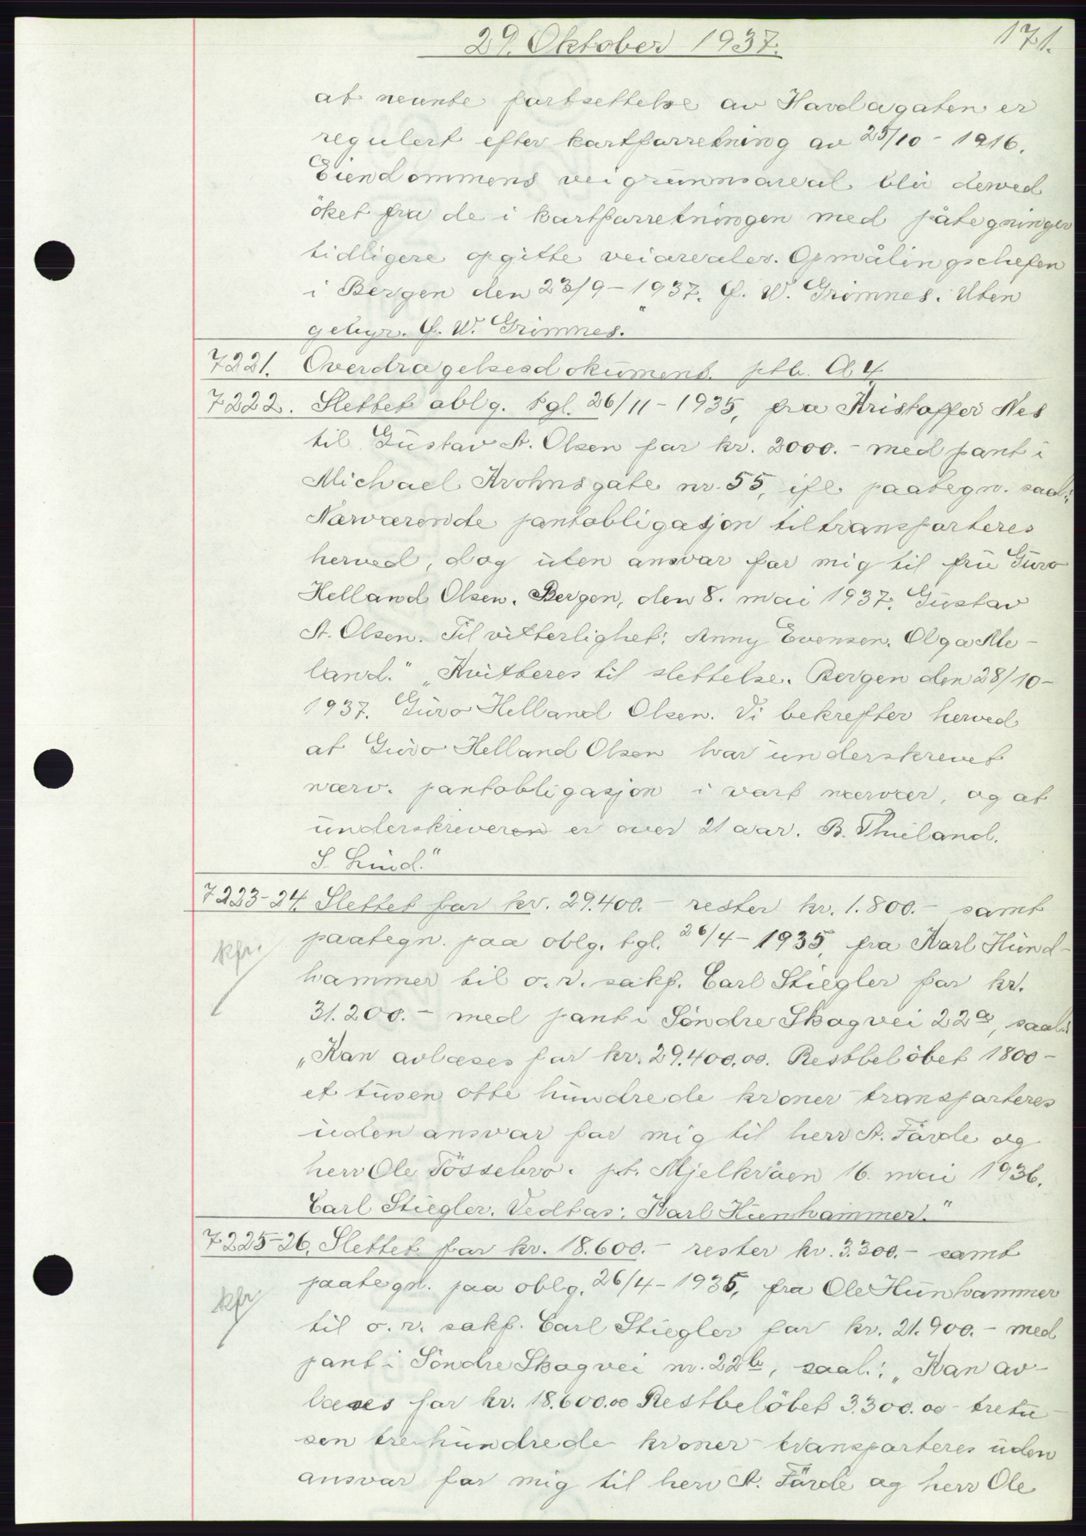 29. Oktober 1937.
171.
at nevnte fortsettelse av Havdagaten er
regulert efter kartforretning av 25/10 - 1916.
Eiendommens veigrunnsareal blir derved
öket fra de i kartforretningen med påtegninger
tidligere opgitte veiarealer. Opmålingschefen
i Bergen den 23/9 - 1937. G. W. Grimnes. Uten
gebyr. G. W. Grimnes."
7221. Overdragelsesdokument. ptb. A 4
7222. Slettet oblg. tgl. 26/11 - 1935, fra Kristoffer Nes
til Gustav A. Olsen for kr. 2000.- med pant i
Michael Krohnsgate nr. 55, ifl. paategn. saal:
Nærværende pantobligasjon tiltransporteres
herved, dog uten ansvar for mig til fru Guro
Helland Olsen. Bergen, den 8. mai 1937. Gustav
A. Olsen. Til vitterlighet: Anny Evensen. Olga Me-
land." „Kvitteres til slettelse. Bergen den 28/10 -
1937. Guro Helland Olsen. Vi bekrefter herved
at Guro Helland Olsen har underskrevet
nærv. pantobligasjon i vart nærvær, og at
underskriveren er over 21 aar. B. Thieland.
S. Lund."
7223-24. Slettet for kr. 29.400.- rester kr. 1.800.- samt
paategn. paa oblg. tgl. 26/4 - 1935, fra Karl Hund-
kfr.
hammer til o. r. sakf. Carl Stiegler for kr.
31.200.- med pant i Söndre Skogvei 22a, saal:
„Kan avlæses for kr. 29.400.00. Restbelöbet 1800 -
et tusen otte hundrede kroner transporteres
uden ansvar for mig til herr A. Farde og
herr Ole Tössebro. pt. Mjelkråen 16. mai 1936.
Carl Stiegler. Vedtas: Karl Hunhammer."
7225-26. Slettet for kr. 18.600.- rester kr. 3.300.- samt
paategn. paa oblg. 26/4 - 1935, fra Ole Hunhammer
kfr
til o. r. sakf. Carl Stiegler for kr. 21.900.- med
pant i Söndre Skogvei nr. 22b, saal: „Kan av-
læses for kr. 18.600.00 Restbelöbet 3.300.00 - tretu-
sen trehundrede kroner transporteres uden
ansvar for mig til herr A. Farde og herr Ole